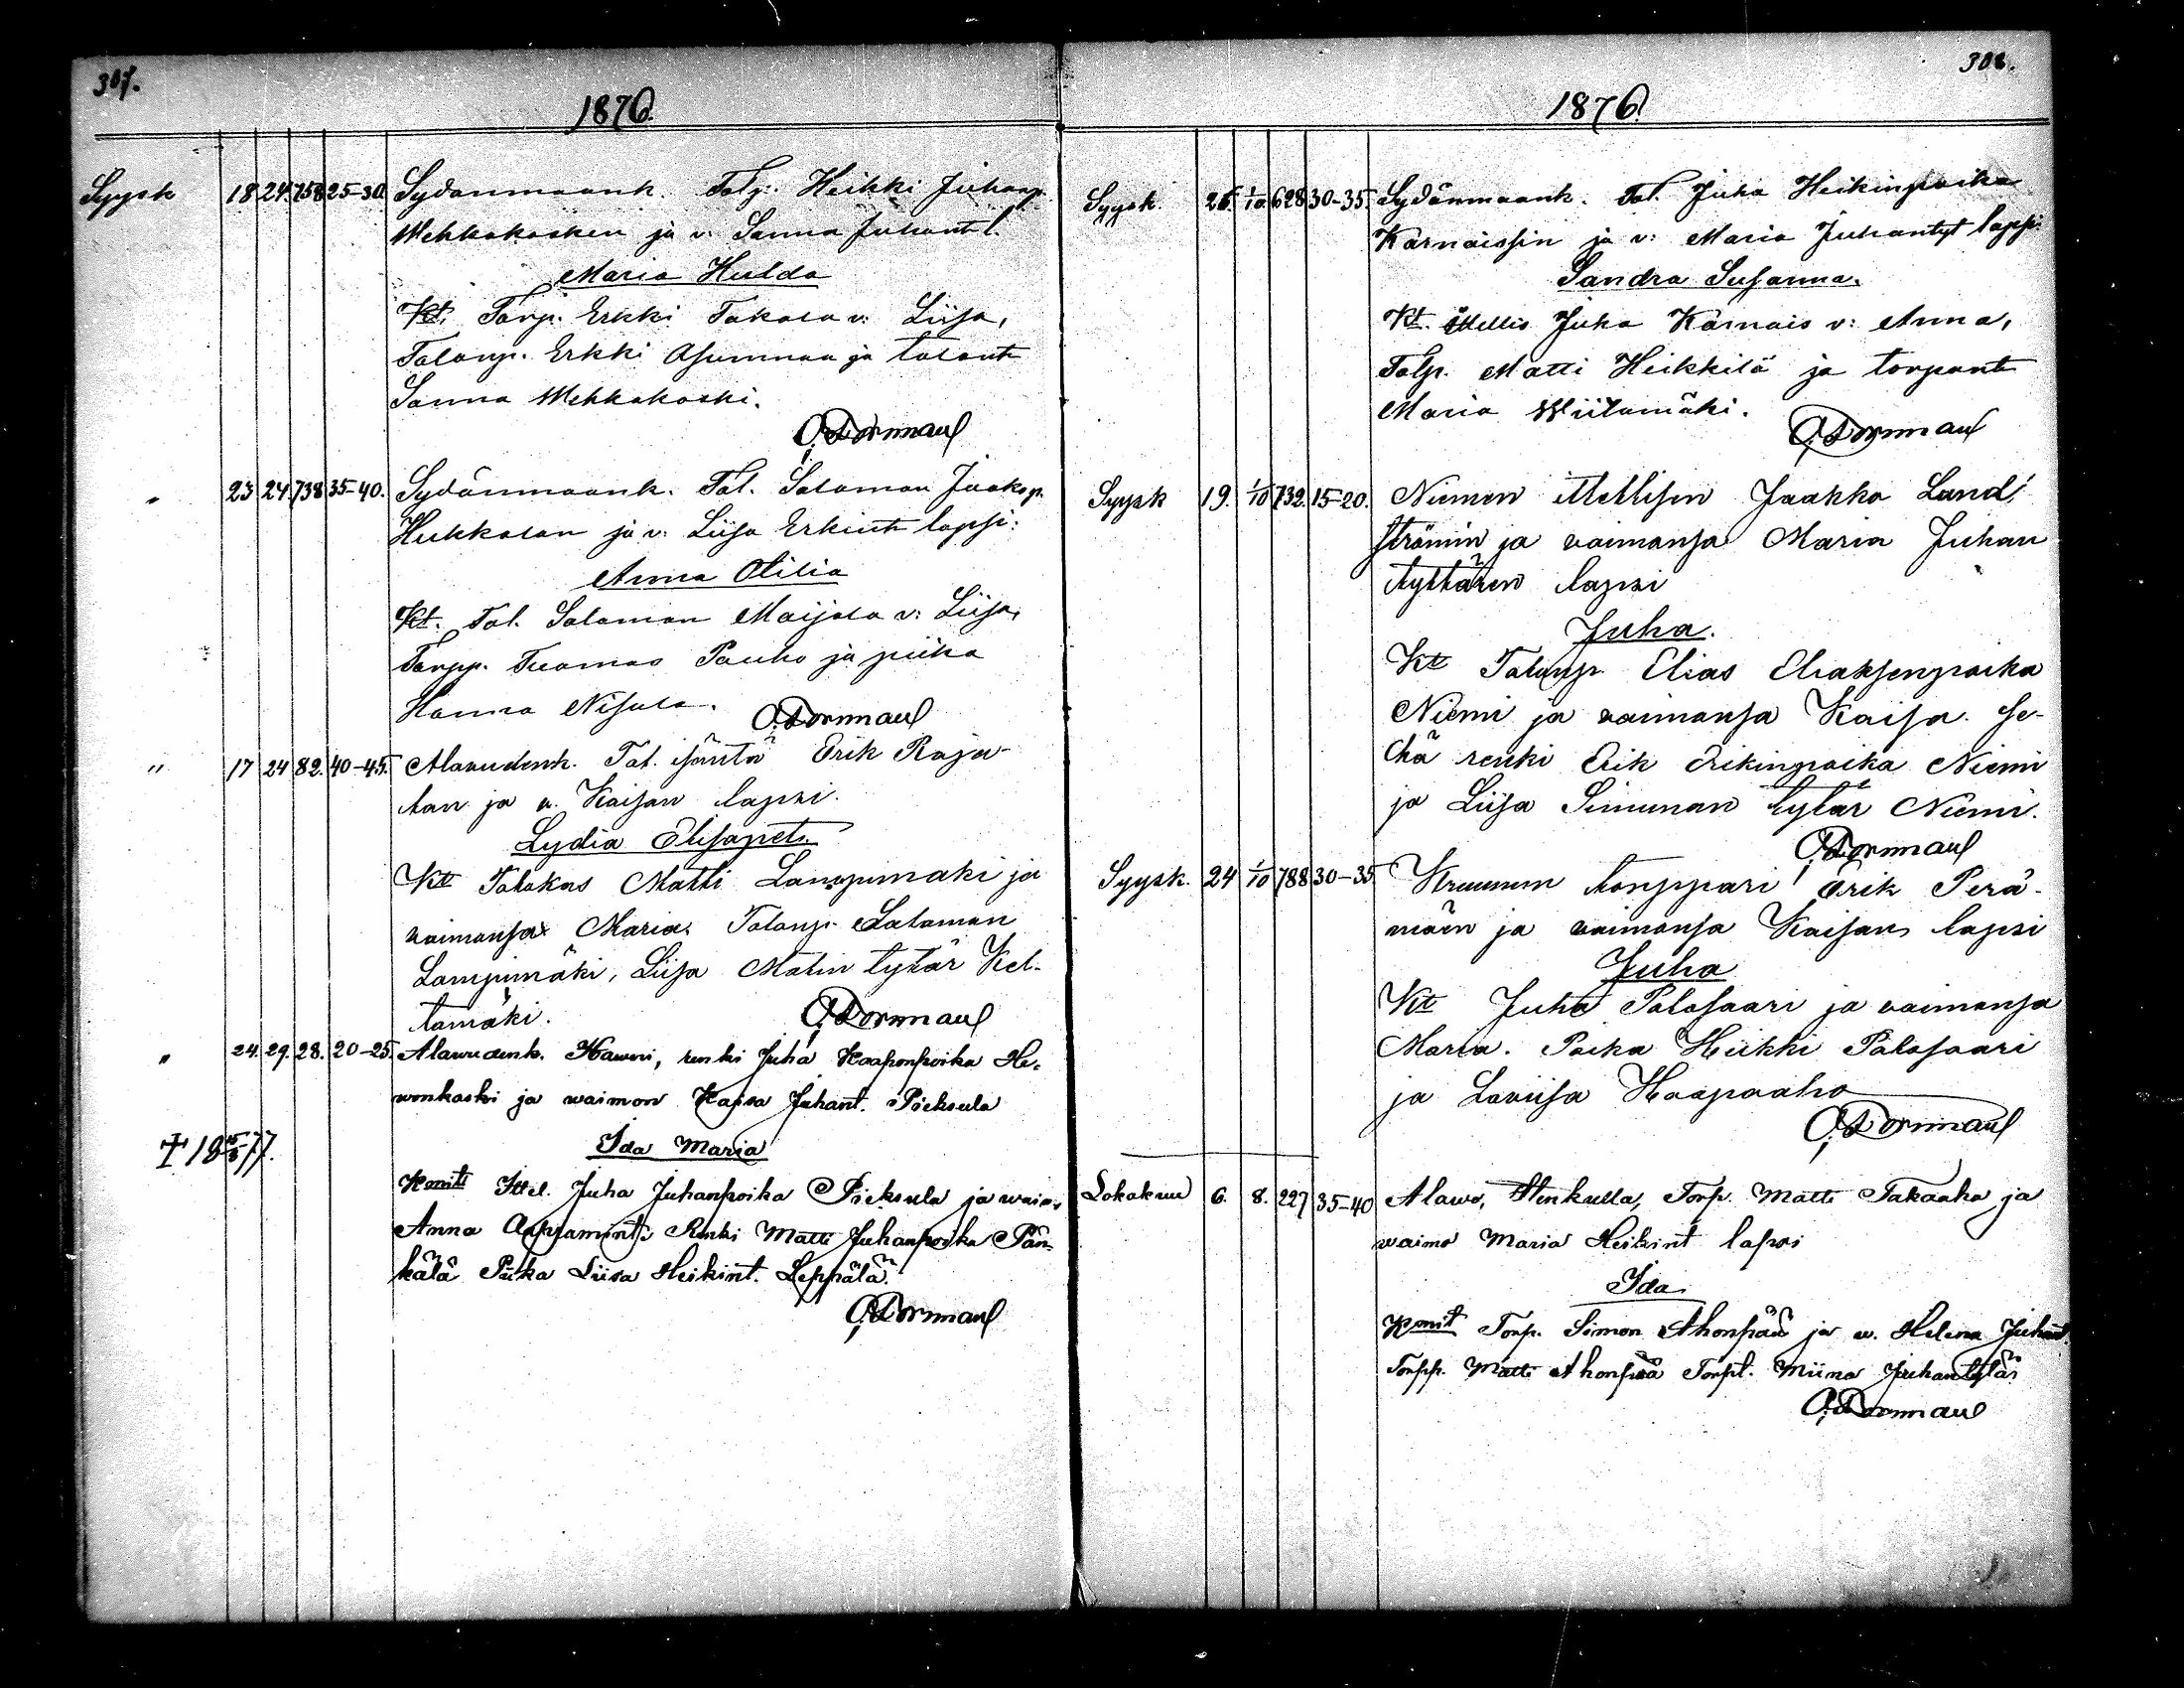 307.
1876.
Syysk 18. 24. 758 25-30. Sydänmaank. Talp. Heikki Juhanp.
Mehkokosken ja v: Sanna Juhant l.
Maria Hulda
Kt. Torp. Erkki Takala v: Liisa,
Talonp. Erkki Asunmaa ja talont
Sanna Mehkokoski.
" 23 24. 738 35-40. Sydänmaank. Tal. Salomon Jaakop.
Hukkalan ja v: Liisa Erkint lapsi:
Anna Otilia
Kt. Tal. Salomon Maijala v: Liisa,
Torpp. Tuomas Pauho ja piika
Hanna Nisula.
" 17 24 82. 40-45. Alavudenk. Tal. isäntä Erik Raja-
lan ja v. Kaisan lapsi.
Lydia Elisapet.
Kt Talokas Matti Lampimäki ja
vaimonsa Maria. Talonp. Salamon
Lampimäki, Liisa Matin tytär Kel-
tamäki.
" 24. 29. 28. 20-25. Alavudenk. Haweri, renki Juha Kaaponpoika He-
wonkoski ja waimon Kajsa Juhant. Pöeksula
Ida Maria
† 18 77.
Kmit Ittel. Juha Juhanpoika Pöeksula ja waim.
Anna Renki Matti Juhanpoika Pän-
kälä Piika Liisa Heikint. Leppälä.
308.
1876.
Syysk. 26. 1/10. 628 30-35. Sydänmaank. Tal. Juha Heikinpoika
Kärnäissin ja v: Maria Juhantyt lapsi:
Sandra Susanna.
Kt. Ittellis Juha Kärnäis v: Anna,
Talp. Matti Heikkilä ja torpant
Maria Wiitamäki.
Syysk 19. 1/10 732. 15-20. Niemen ittellisen Jaakko Land-
strömin ja vaimonsa Maria Juhan
tyttären lapsi
Juha.
Kt Talonp. Elias Eliaksenpoika
Niemi ja vaimonsa Kaisa. Se-
kä renki Erik Erikinpoika Niemi
ja Liisa Simunan tytär Niemi.
Syysk. 24 1/10 788 30-35 Kruunun torppari Erik Perä-
mäen ja vaimonsa Kaisan lapsi
Juha
Kt Juha Palosaari ja vaimonsa
Maria. Poika Heikki Palosaari
ja Loviisa Haapaaho
Lokakuu 6. 8. 227 35-40 Alawo, Torp. Matti Takaaho ja
waimo Maria Heikint lapsi
Ida
Kmit Torp. Simon Ahonpää ja w. Helena Juhant.
Torpp. Matti Ahonpää Torpt. Miina Juhantytär